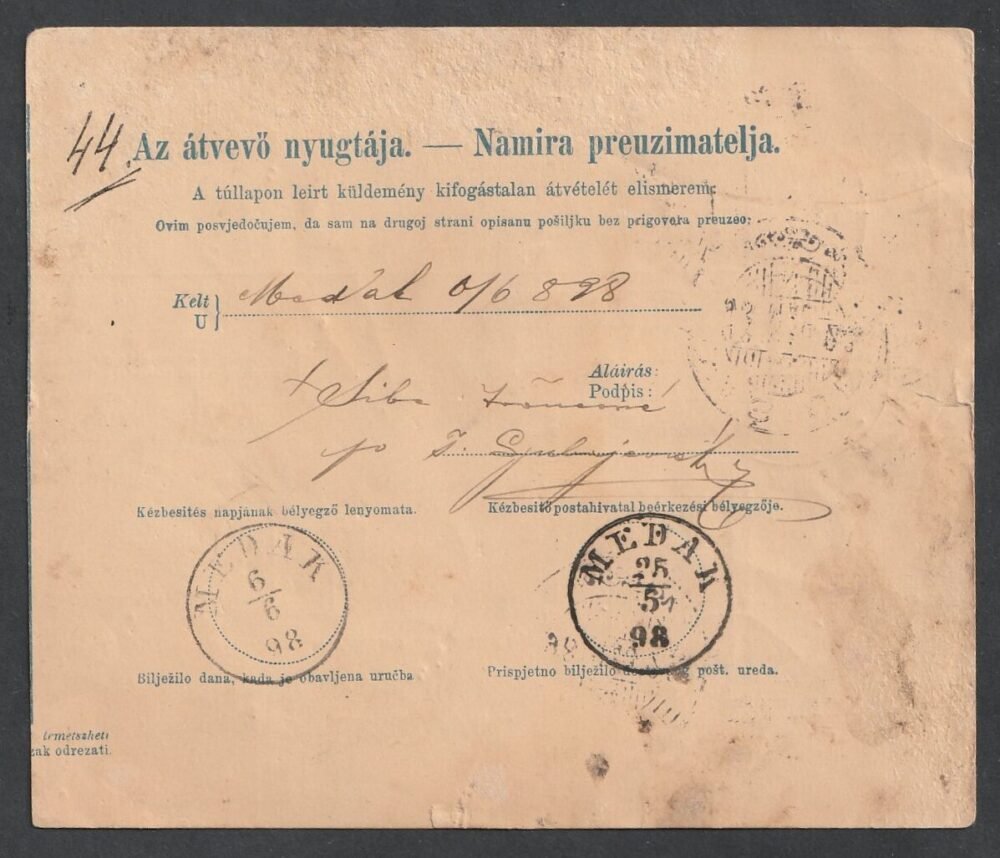 44.
Az átvevő nyugtája. — Namira preuzimatelja.
A túllapon leirt küldemény kifogástalan átvételét elismerem:
Ovim posvjedočujem, da sam na drugoj strani opisanu pošiljku bez prigovera preuzeo:
Kelt
U } Medak 6/6 898
Aláirás:
Podpis:
Kézbesités napjának bélyegző lenyomata.
Kézbesitő postahivatal beérkezési bélyegzője.
MEDAK
6
6
98
MEDAK
25
5
98
Biljėžilo dana, kada je obavljena uručba
Prispjetno bilježilo pošt. ureda.
zak odrezati.